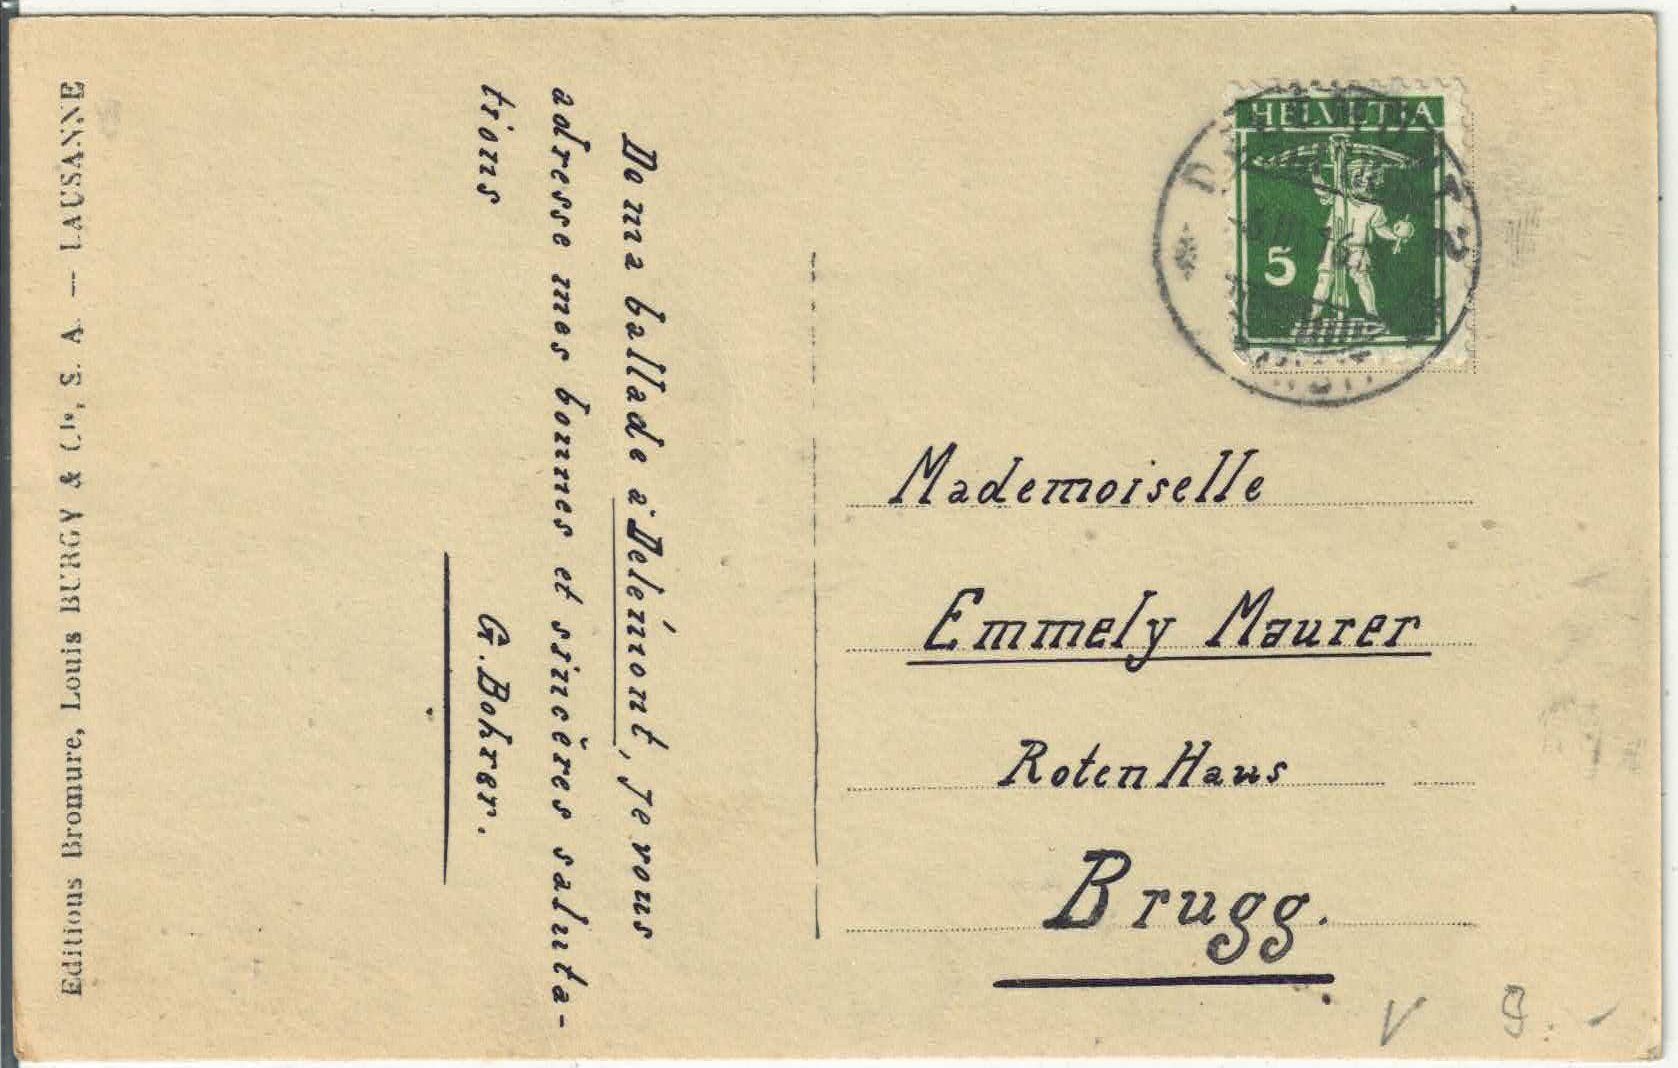 Editions Bromure, Louis BURGY & Cie, S. A. — LAUSANNE
De ma ballade à Delémont, je vous
adresse mes bonnes et sincères saluta-
tions
G. Bohrer.
HELVETIA
5
Mademoiselle
Emmely Maurer
Roten Haus
Brugg.
V 9.-